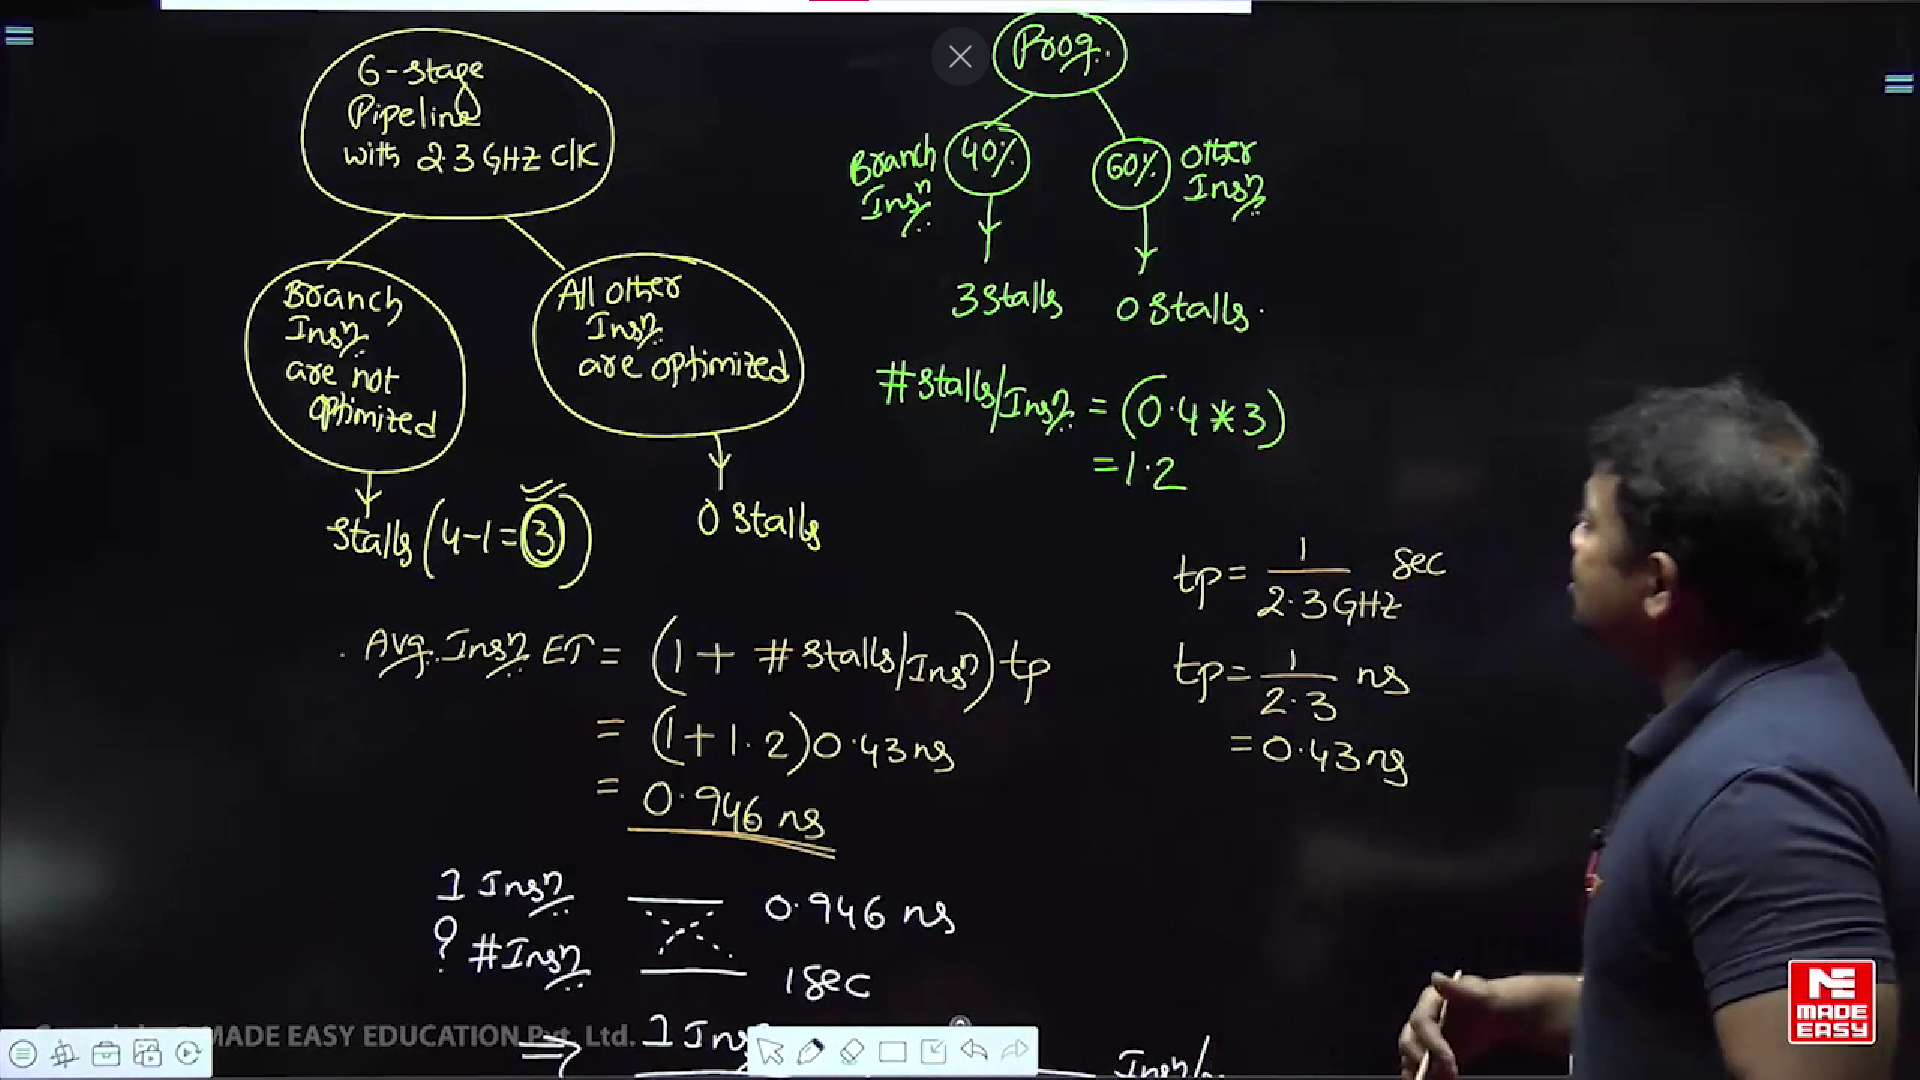 6-stage
Pipeline
with 2.3 GHZ C/K
Branch
Insⁿ
are not
optimized
All other
Insⁿ
are optimized
Stalls (4-1=3)
0 Stalls
Prog.
Branch
Insⁿ
40%
60%
Other
Insⁿ
3 Stalls
0 Stalls.
#Stalls/Insⁿ = (0.4 * 3)
= 1.2
tp = 1 / 2.3 GHZ sec
tp = 1 / 2.3 ns
= 0.43 ns
Avg. Insⁿ ET = (1 + #Stalls/Insⁿ) tp
= (1+1.2) 0.43 ns
= 0.946 ns
1 Insⁿ 0.946 ns
? #Insⁿ 1 sec
⇒ 1 Ins
Insⁿ/
MADE EASY EDUCATION Pvt. Ltd.
ME
MADE
EASY